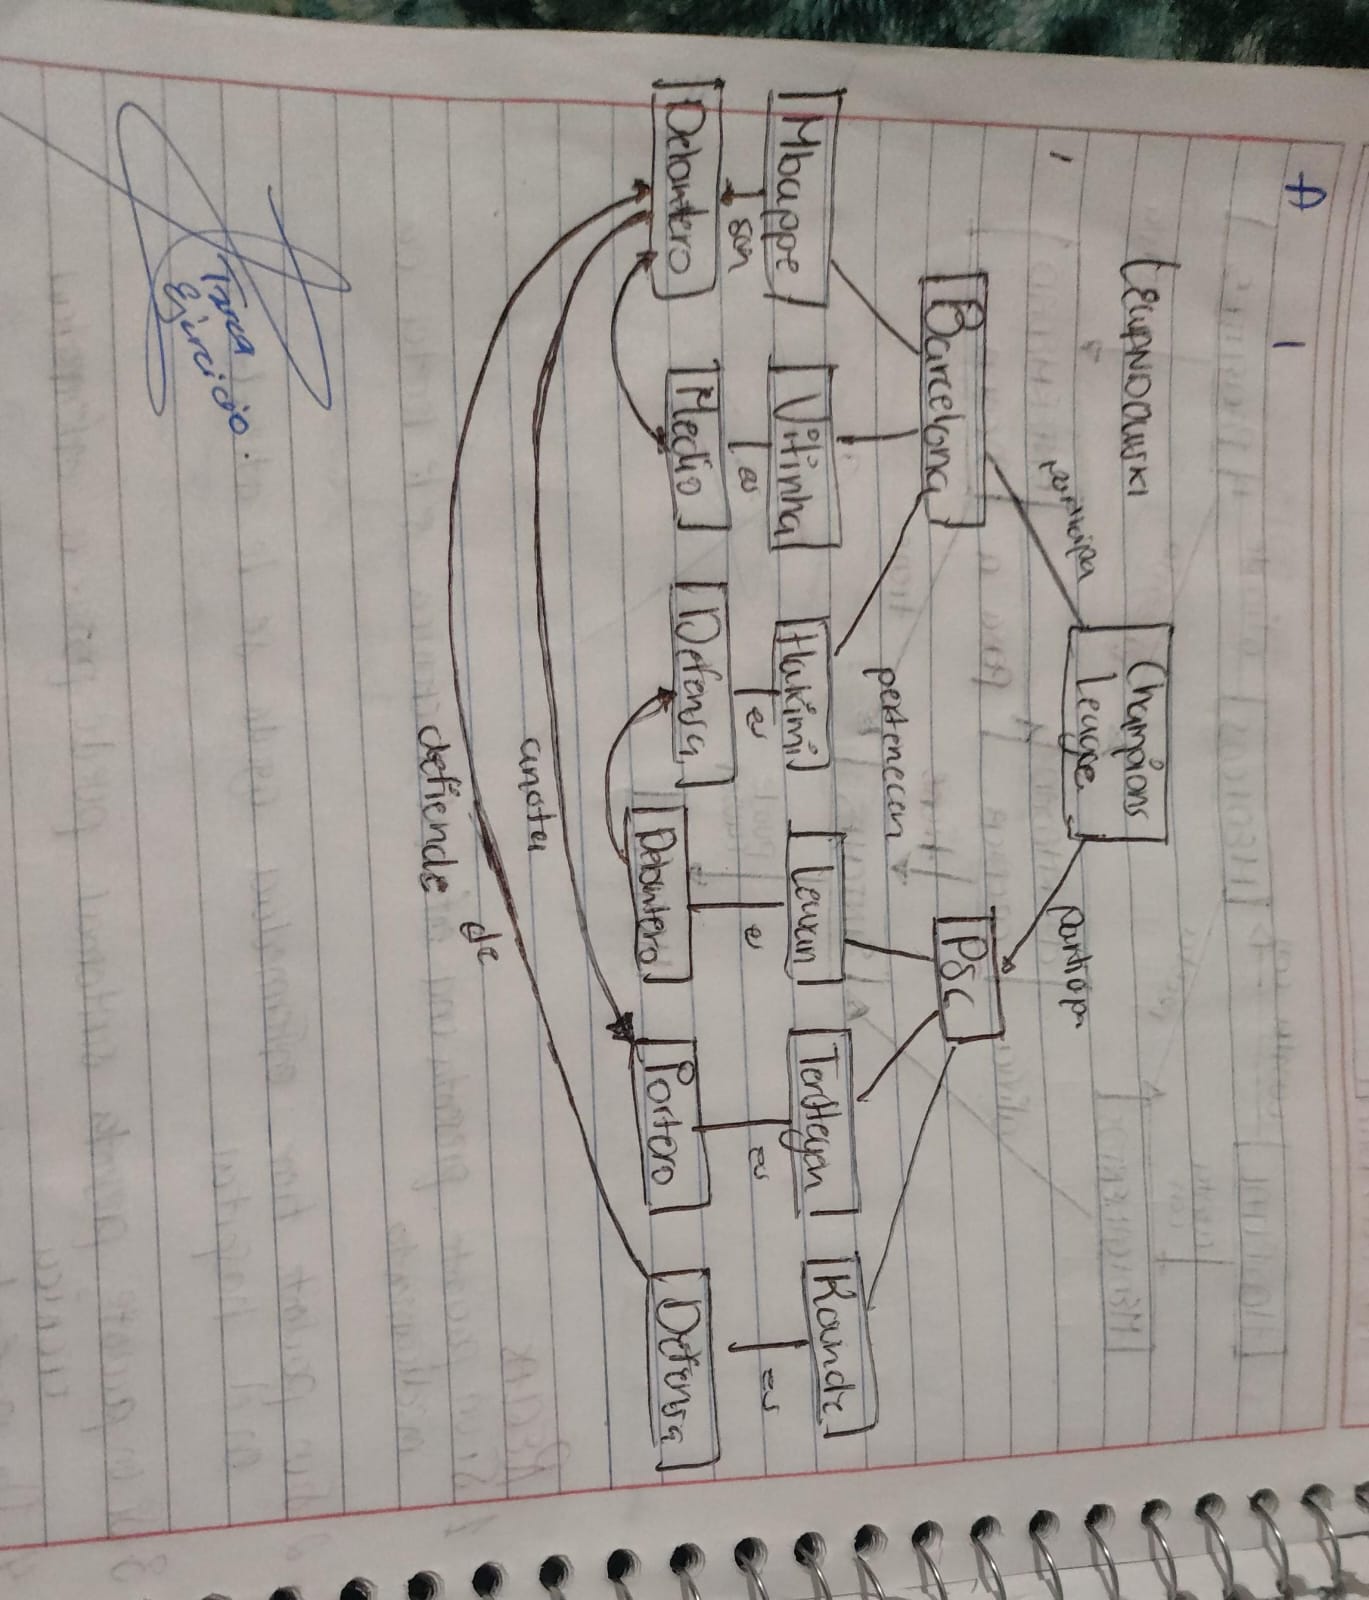 A
1
LEWANDOWSKI
Champions
League
participa
participa
Barcelona
PSG
pertenecen
Mbappe
Vitinha
Hakimi
Lewan
TerStegen
Kounde
son
es
es
es
es
es
Delantero
Medio
Defensa
Delantero
Portero
Defensa
anota
defiende de
Tarea
Ejercicio.